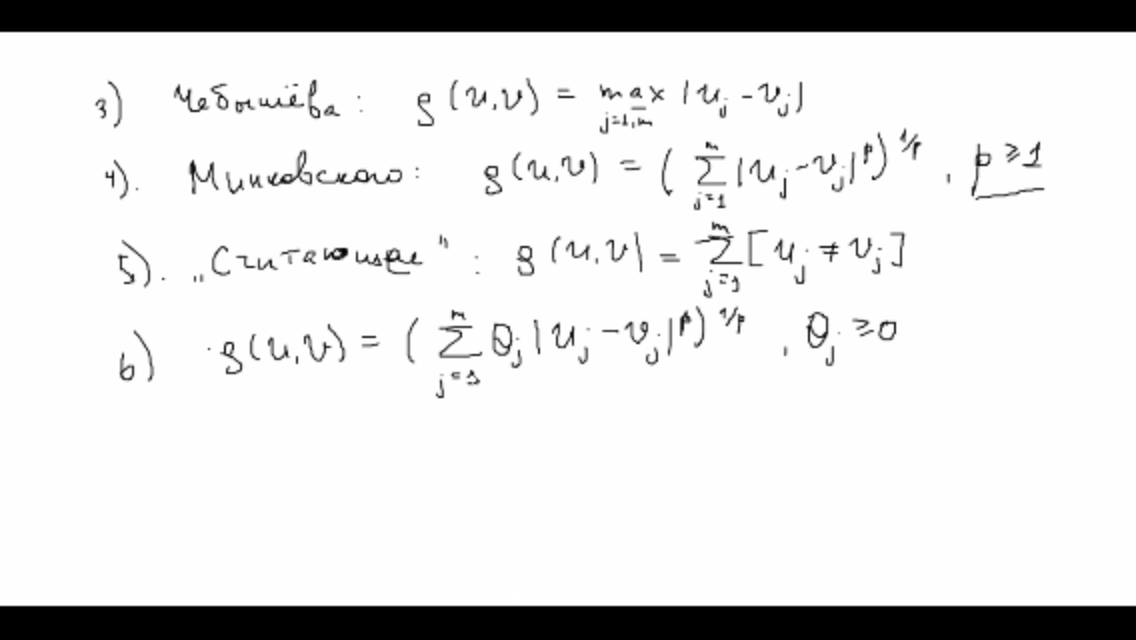 3) Чебышёва: ρ(u,v) = max_{j=1,m} |u_j - v_j|
4). Минковского: ρ(u,v) = ( ∑_{j=1}^{m} |u_j - v_j|^p )^{1/p}, p ≥ 1
5). „Считающее“: ρ(u,v) = ∑_{j=1}^{m} [u_j ≠ v_j]
6) ρ(u,v) = ( ∑_{j=1}^{m} θ_j |u_j - v_j|^p )^{1/p}, θ_j ≥ 0